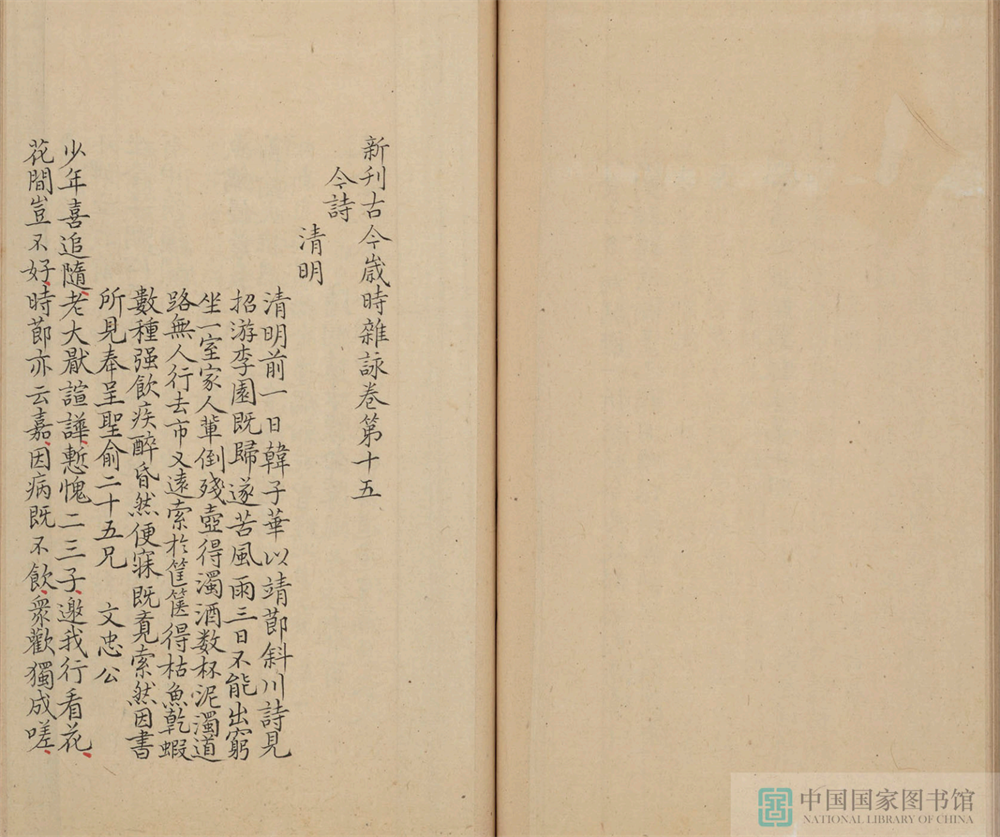 新刊古今歲時雜詠卷第十五
今詩
清明
清明前一日韓子華以靖節斜川詩見
招游李園既歸遂苦風雨三日不能出窮
坐一室家人輩倒殘壺得濁酒数杯泥濁道
路無人行去市又遠索於筐篋得枯魚乾蝦
數種强飲疾醉昏然便寐既竟索然因書
所見奉呈聖俞二十五兄 文忠公
少年喜追隨老大厭諠譁慙愧二三子邀我行看花
花間豈不好時節亦云嘉因病既不飲衆歡獨成嗟
中国国家图书馆
NATIONAL LIBRARY OF CHINA